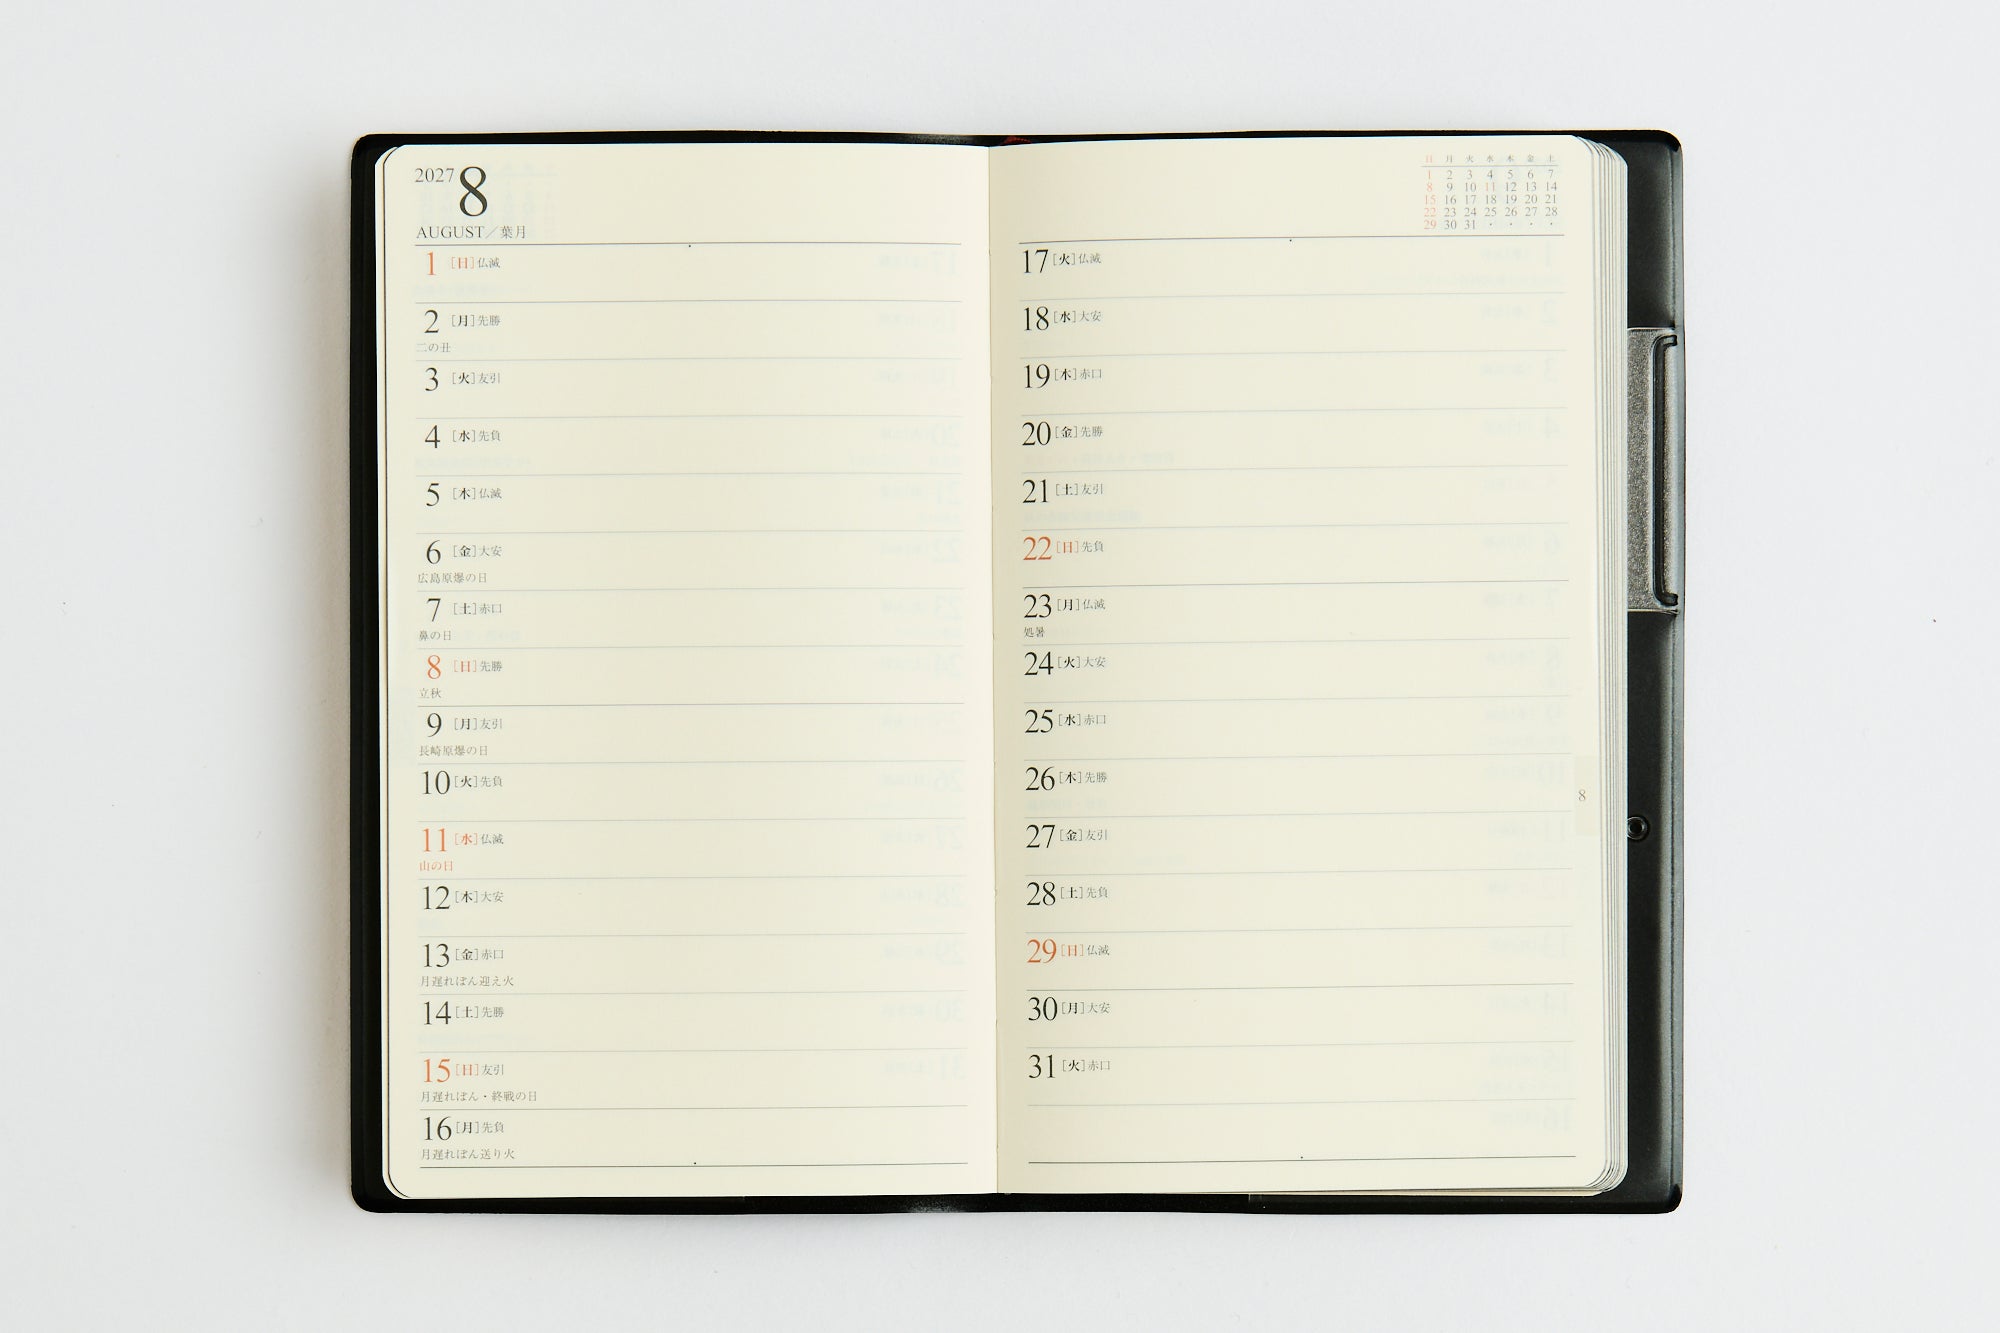 2027 8
AUGUST／葉月
1 [日]仏滅
2 [月]先勝
二の丑
3 [火]友引
4 [水]先負
5 [木]仏滅
6 [金]大安
広島原爆の日
7 [土]赤口
鼻の日
8 [日]先勝
立秋
9 [月]友引
長崎原爆の日
10 [火]先負
11 [水]仏滅
山の日
12 [木]大安
13 [金]赤口
月遅れぼん迎え火
14 [土]先勝
15 [日]友引
月遅れぼん・終戦の日
16 [月]先負
月遅れぼん送り火
日 月 火 水 木 金 土
1 2 3 4 5 6 7
8 9 10 11 12 13 14
15 16 17 18 19 20 21
22 23 24 25 26 27 28
29 30 31 · · · ·
17 [火]仏滅
18 [水]大安
19 [木]赤口
20 [金]先勝
21 [土]友引
22 [日]先負
23 [月]仏滅
処暑
24 [火]大安
25 [水]赤口
26 [木]先勝
27 [金]友引
28 [土]先負
29 [日]仏滅
30 [月]大安
31 [火]赤口
8